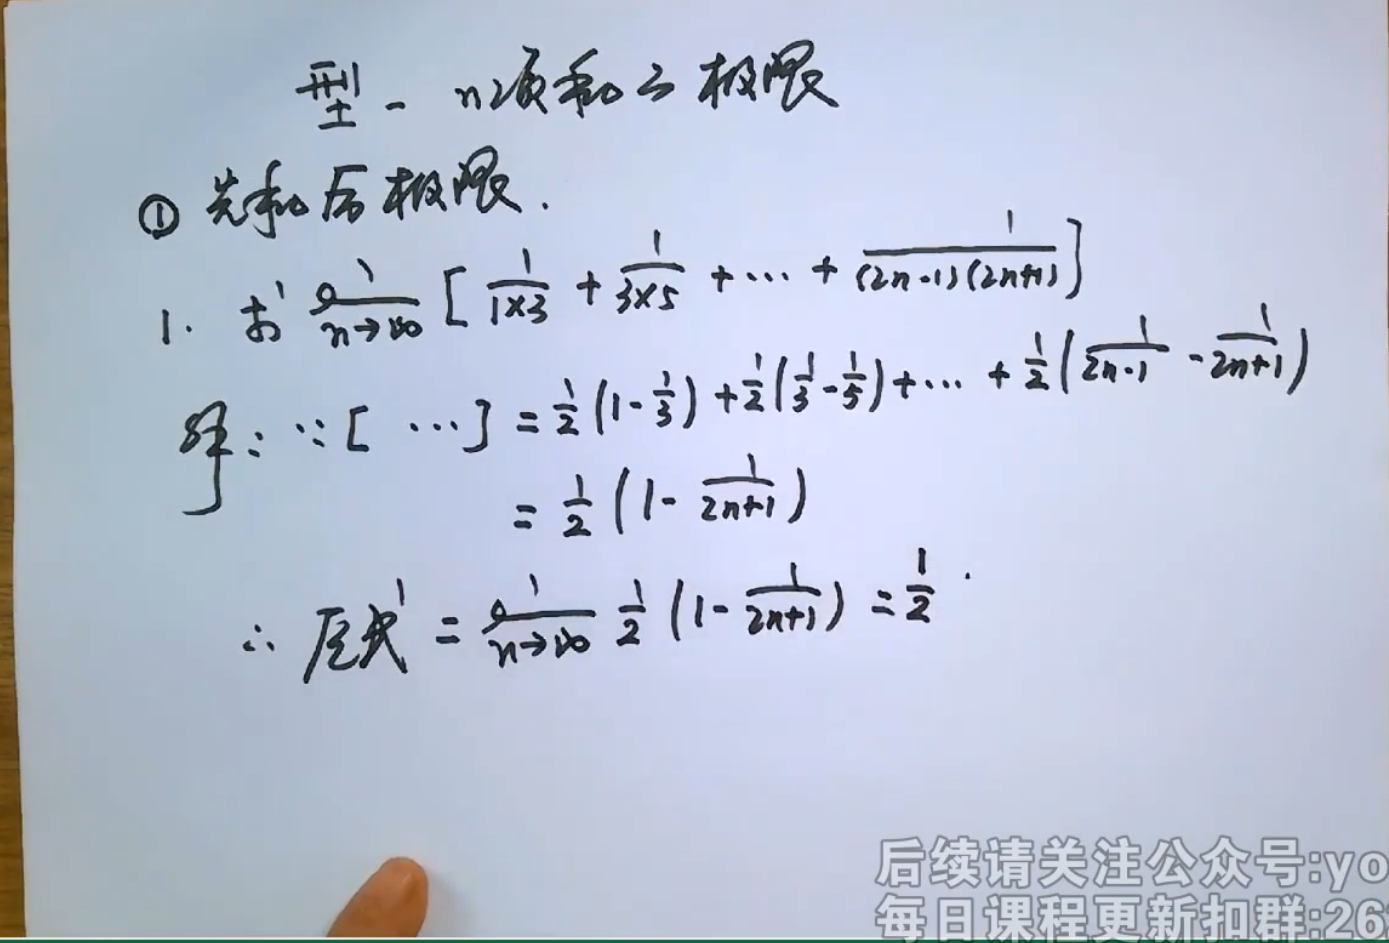 型一 n项和之极限
① 先和后极限.
1. 求 lim n→∞ [ 1/(1×3) + 1/(3×5) + ⋯ + 1/((2n-1)(2n+1)) ]
解: ∵ [ ⋯ ] = 1/2 (1 - 1/3) + 1/2 (1/3 - 1/5) + ⋯ + 1/2 (1/(2n-1) - 1/(2n+1))
= 1/2 (1 - 1/(2n+1))
∴ 原式 = lim n→∞ 1/2 (1 - 1/(2n+1)) = 1/2.
后续请关注公众号:yo
每日课程更新扣群:26